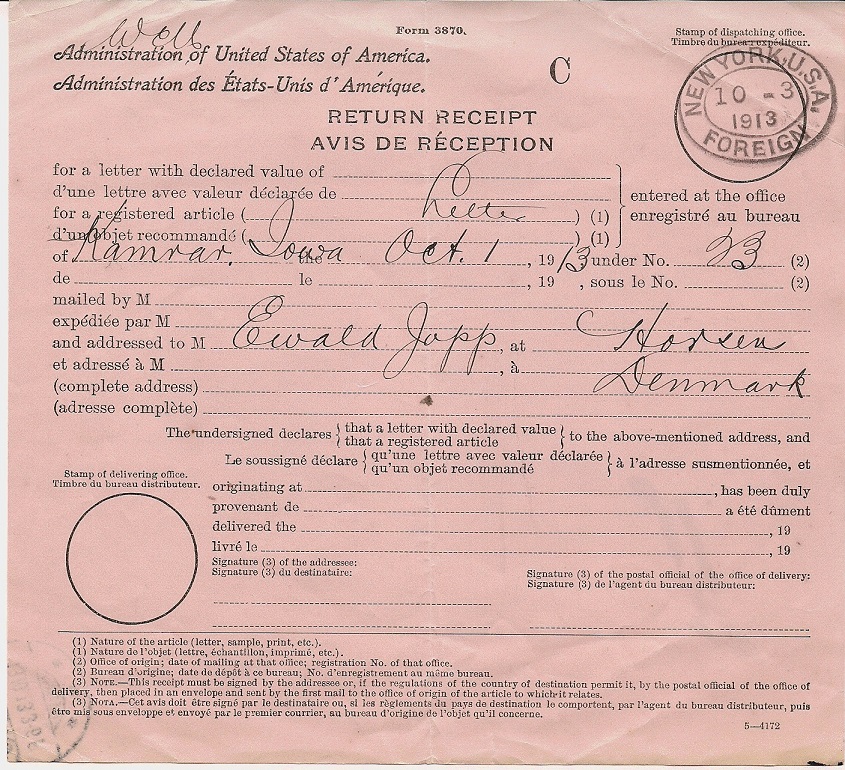 Form 3870.
Administration of United States of America.
Administration des États-Unis d'Amérique.
C
Stamp of dispatching office.
Timbre du bureau expéditeur.
NEW YORK, U.S.A.
10 - 3
1913
FOREIGN
RETURN RECEIPT
AVIS DE RÉCEPTION
for a letter with declared value of
d'une lettre avec valeur déclarée de
for a registered article ( Letter ) (1)
d'un objet recommandé ( ) (1)
entered at the office
enregistré au bureau
of Kamrar, Iowa the Oct. 1, 1913 under No. 23 (2)
de le , 19 , sous le No. (2)
mailed by M
expédiée par M
and addressed to M Ewald Jopp, at Horsen
et adressé à M , à Denmark
(complete address)
(adresse complète)
The undersigned declares { that a letter with declared value } to the above-mentioned address, and
that a registered article
Le soussigné déclare { qu'une lettre avec valeur déclarée } à l'adresse susmentionnée, et
qu'un objet recommandé
Stamp of delivering office.
Timbre du bureau distributeur.
originating at , has been duly
provenant de a été dûment
delivered the , 19
livré le , 19
Signature (3) of the addressee:
Signature (3) du destinataire:
Signature (3) of the postal official of the office of delivery:
Signature (3) de l'agent du bureau distributeur:
(1) Nature of the article (letter, sample, print, etc.).
(1) Nature de l'objet (lettre, échantillon, imprimé, etc.).
(2) Office of origin; date of mailing at that office; registration No. of that office.
(2) Bureau d'origine; date de dépôt à ce bureau; No. d'enregistrement au même bureau.
(3) NOTE.—This receipt must be signed by the addressee or, if the regulations of the country of destination permit it, by the postal official of the office of
delivery, then placed in an envelope and sent by the first mail to the office of origin of the article to which it relates.
(3) NOTA.—Cet avis doit être signé par le destinataire ou, si les règlements du pays de destination le comportent, par l'agent du bureau distributeur, puis
être mis sous enveloppe et envoyé par le premier courrier, au bureau d'origine de l'objet qu'il concerne.
5—4172